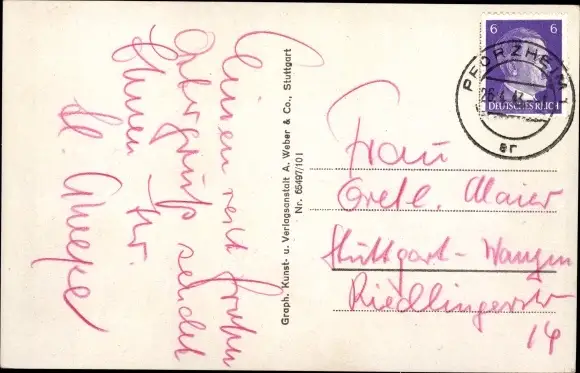 Einen recht frohen
Ostergruß sendet
Ihnen Ihr
Graph. Kunst- u. Verlagsanstalt A. Weber & Co., Stuttgart
Nr. 65497/10 I
6 6
DEUTSCHES REICH
PFORZHEIM 1
Frau
Gretl. Maier
Stuttgart-Wangen
Riedlingerstr
14